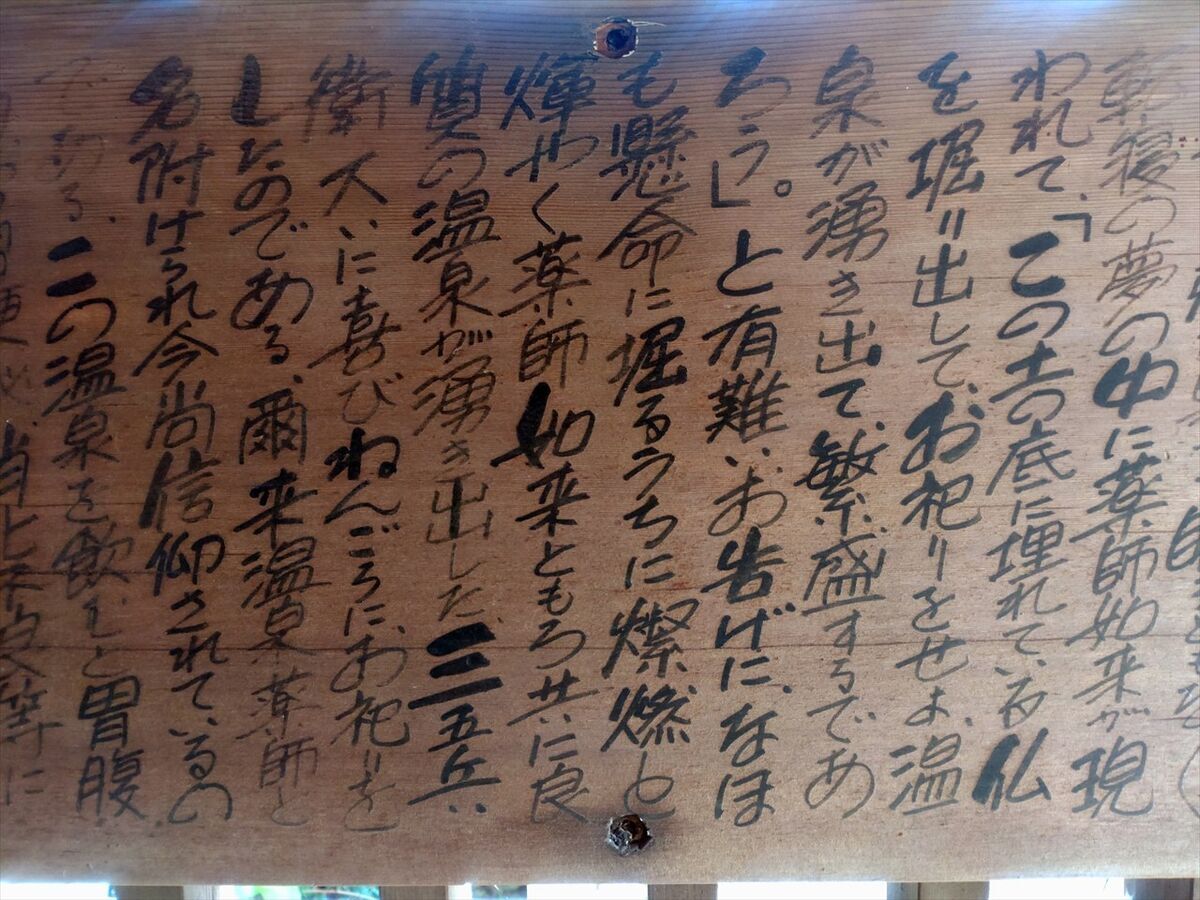 転寝の夢の中に薬師如来が現
われて、「この土の底に埋れている仏
を堀り出して、お祀りをせよ、温
泉が湧き出て、繁盛するであ
ろう」。と有難いお告げに、なほ
も懸命に堀るうちに燦燃と
輝やく薬師如来ともろ共に良
質の温泉が湧き出した、三五兵
衛大いに喜びねんごろに、お祀りを
したのである、爾来温泉薬師と
名附けられ今尚信仰されているの
である、この温泉を飲むと胃腹